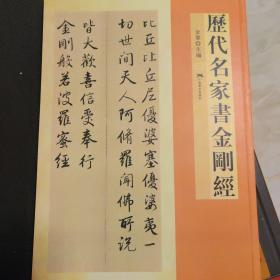 歷代名家書金剛經
比丘比丘尼優婆塞優婆夷一
切世间天人阿脩羅聞佛所説
皆大歡喜信受奉行
金剛般若波羅蜜經